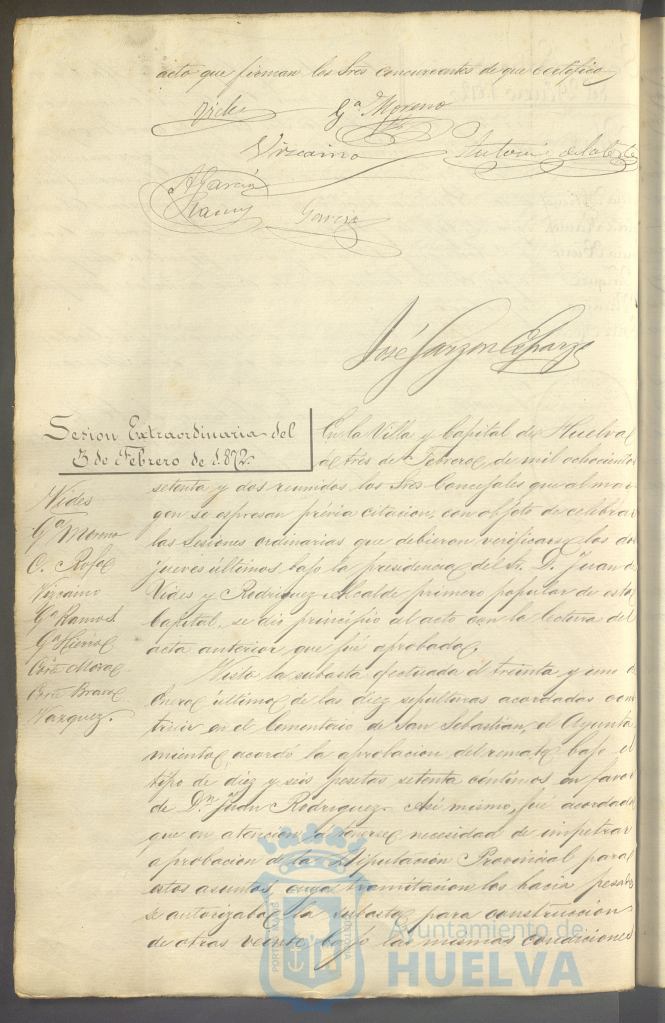 acto que firman los Sres concurrentes de que certifico
Vides Gª Moreno
Vizcaino Antonio de la Corte
A García
Ramos García
José Garzon Esparza
Sesion Extraordinaria del
3 de Febrero de 1.872.
En la Villa y Capital de Huelva
á tres de Febrero de mil ochocientos
setenta y dos reunidos los Sres Concejales que al mar-
gen se espresan previa citacion, con objeto de celebrar
las sesiones ordinarias que debieron verificarse los dos
jueves últimos, bajo la presidencia del Sr. D. Juan
Vides y Rodriguez Alcalde primero popular de esta
Capital, se dio principio al acto con la lectura del
acta anterior que fué aprobada.
Vides
Gª Moreno
Vizcaino
Gª Ramos
Vazquez.
Visto la subasta efectuada el treinta y uno
Enero último de las diez sepulturas acordadas cons
truir en el Cementerio de San Sebastian, el Ayunta
miento acordó la aprobacion del remate bajo el
tipo de diez y seis pesetas setenta centimos en favor
de Dn. Juan Rodriguez. Asi mismo, fué acordado
que en atencion la necesidad de impetrar
aprobacion de la Diputacion Provincial para
estos asuntos, cuya tramitacion los hacia pesados
se autorizaba la subasta para construccion
de otras veinte bajo las mismas condiciones
PORTUS MARIS ET TERRAE CUSTODIA
Ayuntamiento de
HUELVA